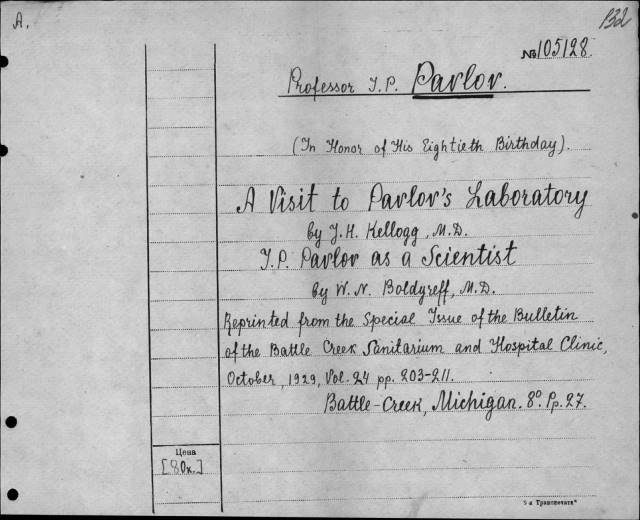 A.
B2d
№ 105128.
Professor I.P. Pavlov.
(In Honor of His Eightieth Birthday).
A Visit to Pavlov's Laboratory
by J.H. Kellogg, M.D.
I.P. Pavlov as a Scientist
by W.N. Boldyreff, M.D.
Reprinted from the Special Issue of the Bulletin
of the Battle Creek Sanitarium and Hospital Clinic,
October, 1929, Vol. 24 pp. 203-211.
Battle-Creek, Michigan. 8º. Pp. 27.
Цена
[80к.]
5 я Транспечать"